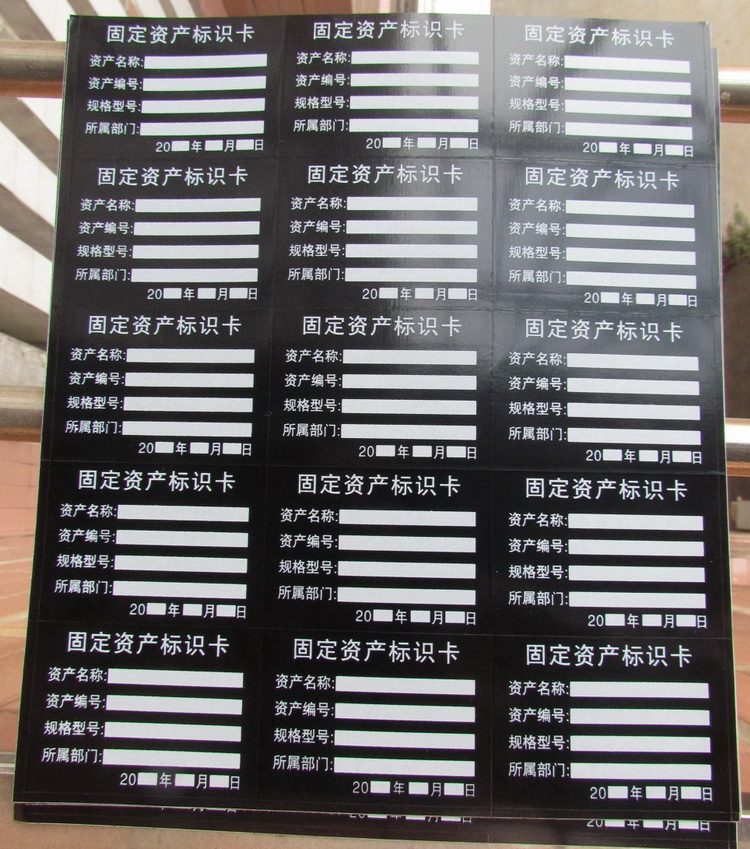 固定资产标识卡
资产名称:
资产编号:
规格型号:
所属部门:
20 年 月 日
固定资产标识卡
资产名称:
资产编号:
规格型号:
所属部门:
20 年 月 日
固定资产标识卡
资产名称:
资产编号:
规格型号:
所属部门:
20 年 月 日
固定资产标识卡
资产名称:
资产编号:
规格型号:
所属部门:
20 年 月 日
固定资产标识卡
资产名称:
资产编号:
规格型号:
所属部门:
20 年 月 日
固定资产标识卡
资产名称:
资产编号:
规格型号:
所属部门:
20 年 月 日
固定资产标识卡
资产名称:
资产编号:
规格型号:
所属部门:
20 年 月 日
固定资产标识卡
资产名称:
资产编号:
规格型号:
所属部门:
20 年 月 日
固定资产标识卡
资产名称:
资产编号:
规格型号:
所属部门:
20 年 月 日
固定资产标识卡
资产名称:
资产编号:
规格型号:
所属部门:
20 年 月 日
固定资产标识卡
资产名称:
资产编号:
规格型号:
所属部门:
20 年 月 日
固定资产标识卡
资产名称:
资产编号:
规格型号:
所属部门:
20 年 月 日
固定资产标识卡
资产名称:
资产编号:
规格型号:
所属部门:
20 年 月 日
固定资产标识卡
资产名称:
资产编号:
规格型号:
所属部门:
20 年 月 日
固定资产标识卡
资产名称:
资产编号:
规格型号:
所属部门:
20 年 月 日